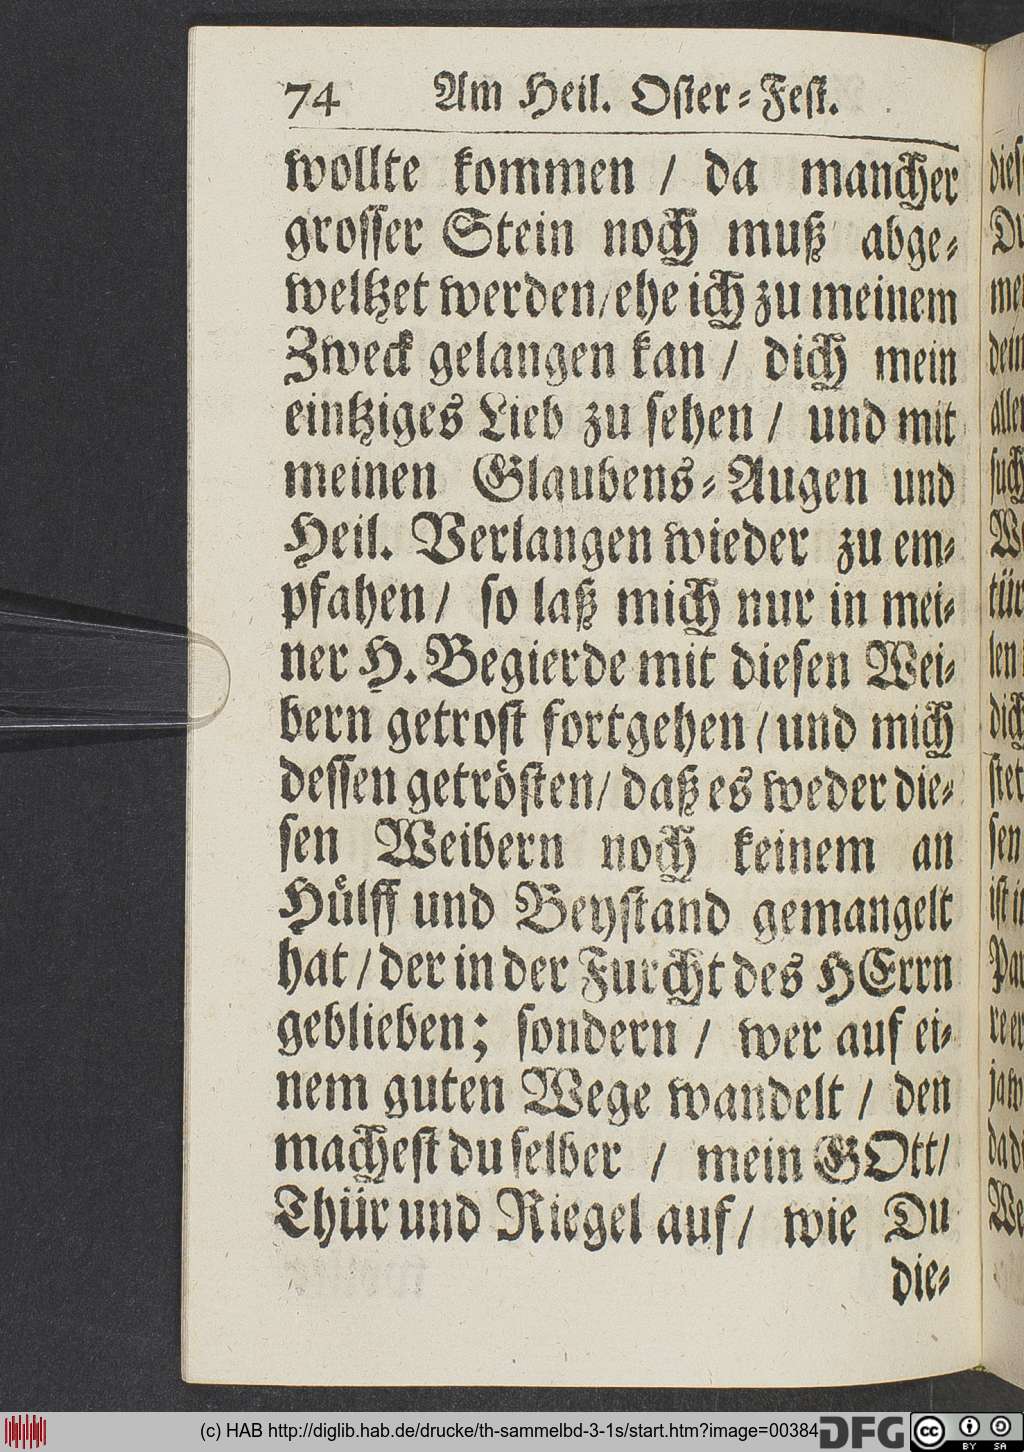 74 Am Heil. Oster-Fest.
wollte kommen / da mancher
grosser Stein noch muß abge-
weltzet werden/ehe ich zu meinem
Zweck gelangen kan / dich mein
eintziges Lieb zu sehen / und mit
meinen Glaubens-Augen und
Heil. Verlangen wieder zu em-
pfahen/ so laß mich nur in mei-
ner H. Begierde mit diesen Wei-
bern getrost fortgehen/und mich
dessen getrösten/daß es weder die-
sen Weibern noch keinem an
Hülff und Beystand gemangelt
hat/der in der Furcht des HErrn
geblieben; sondern / wer auf ei-
nem guten Wege wandelt / den
machest du selber / mein GOtt/
Thür und Riegel auf/ wie Du
die-
(c) HAB http://diglib.hab.de/drucke/th-sammelbd-3-1s/start.htm?image=00384
DFG
cc
BY SA